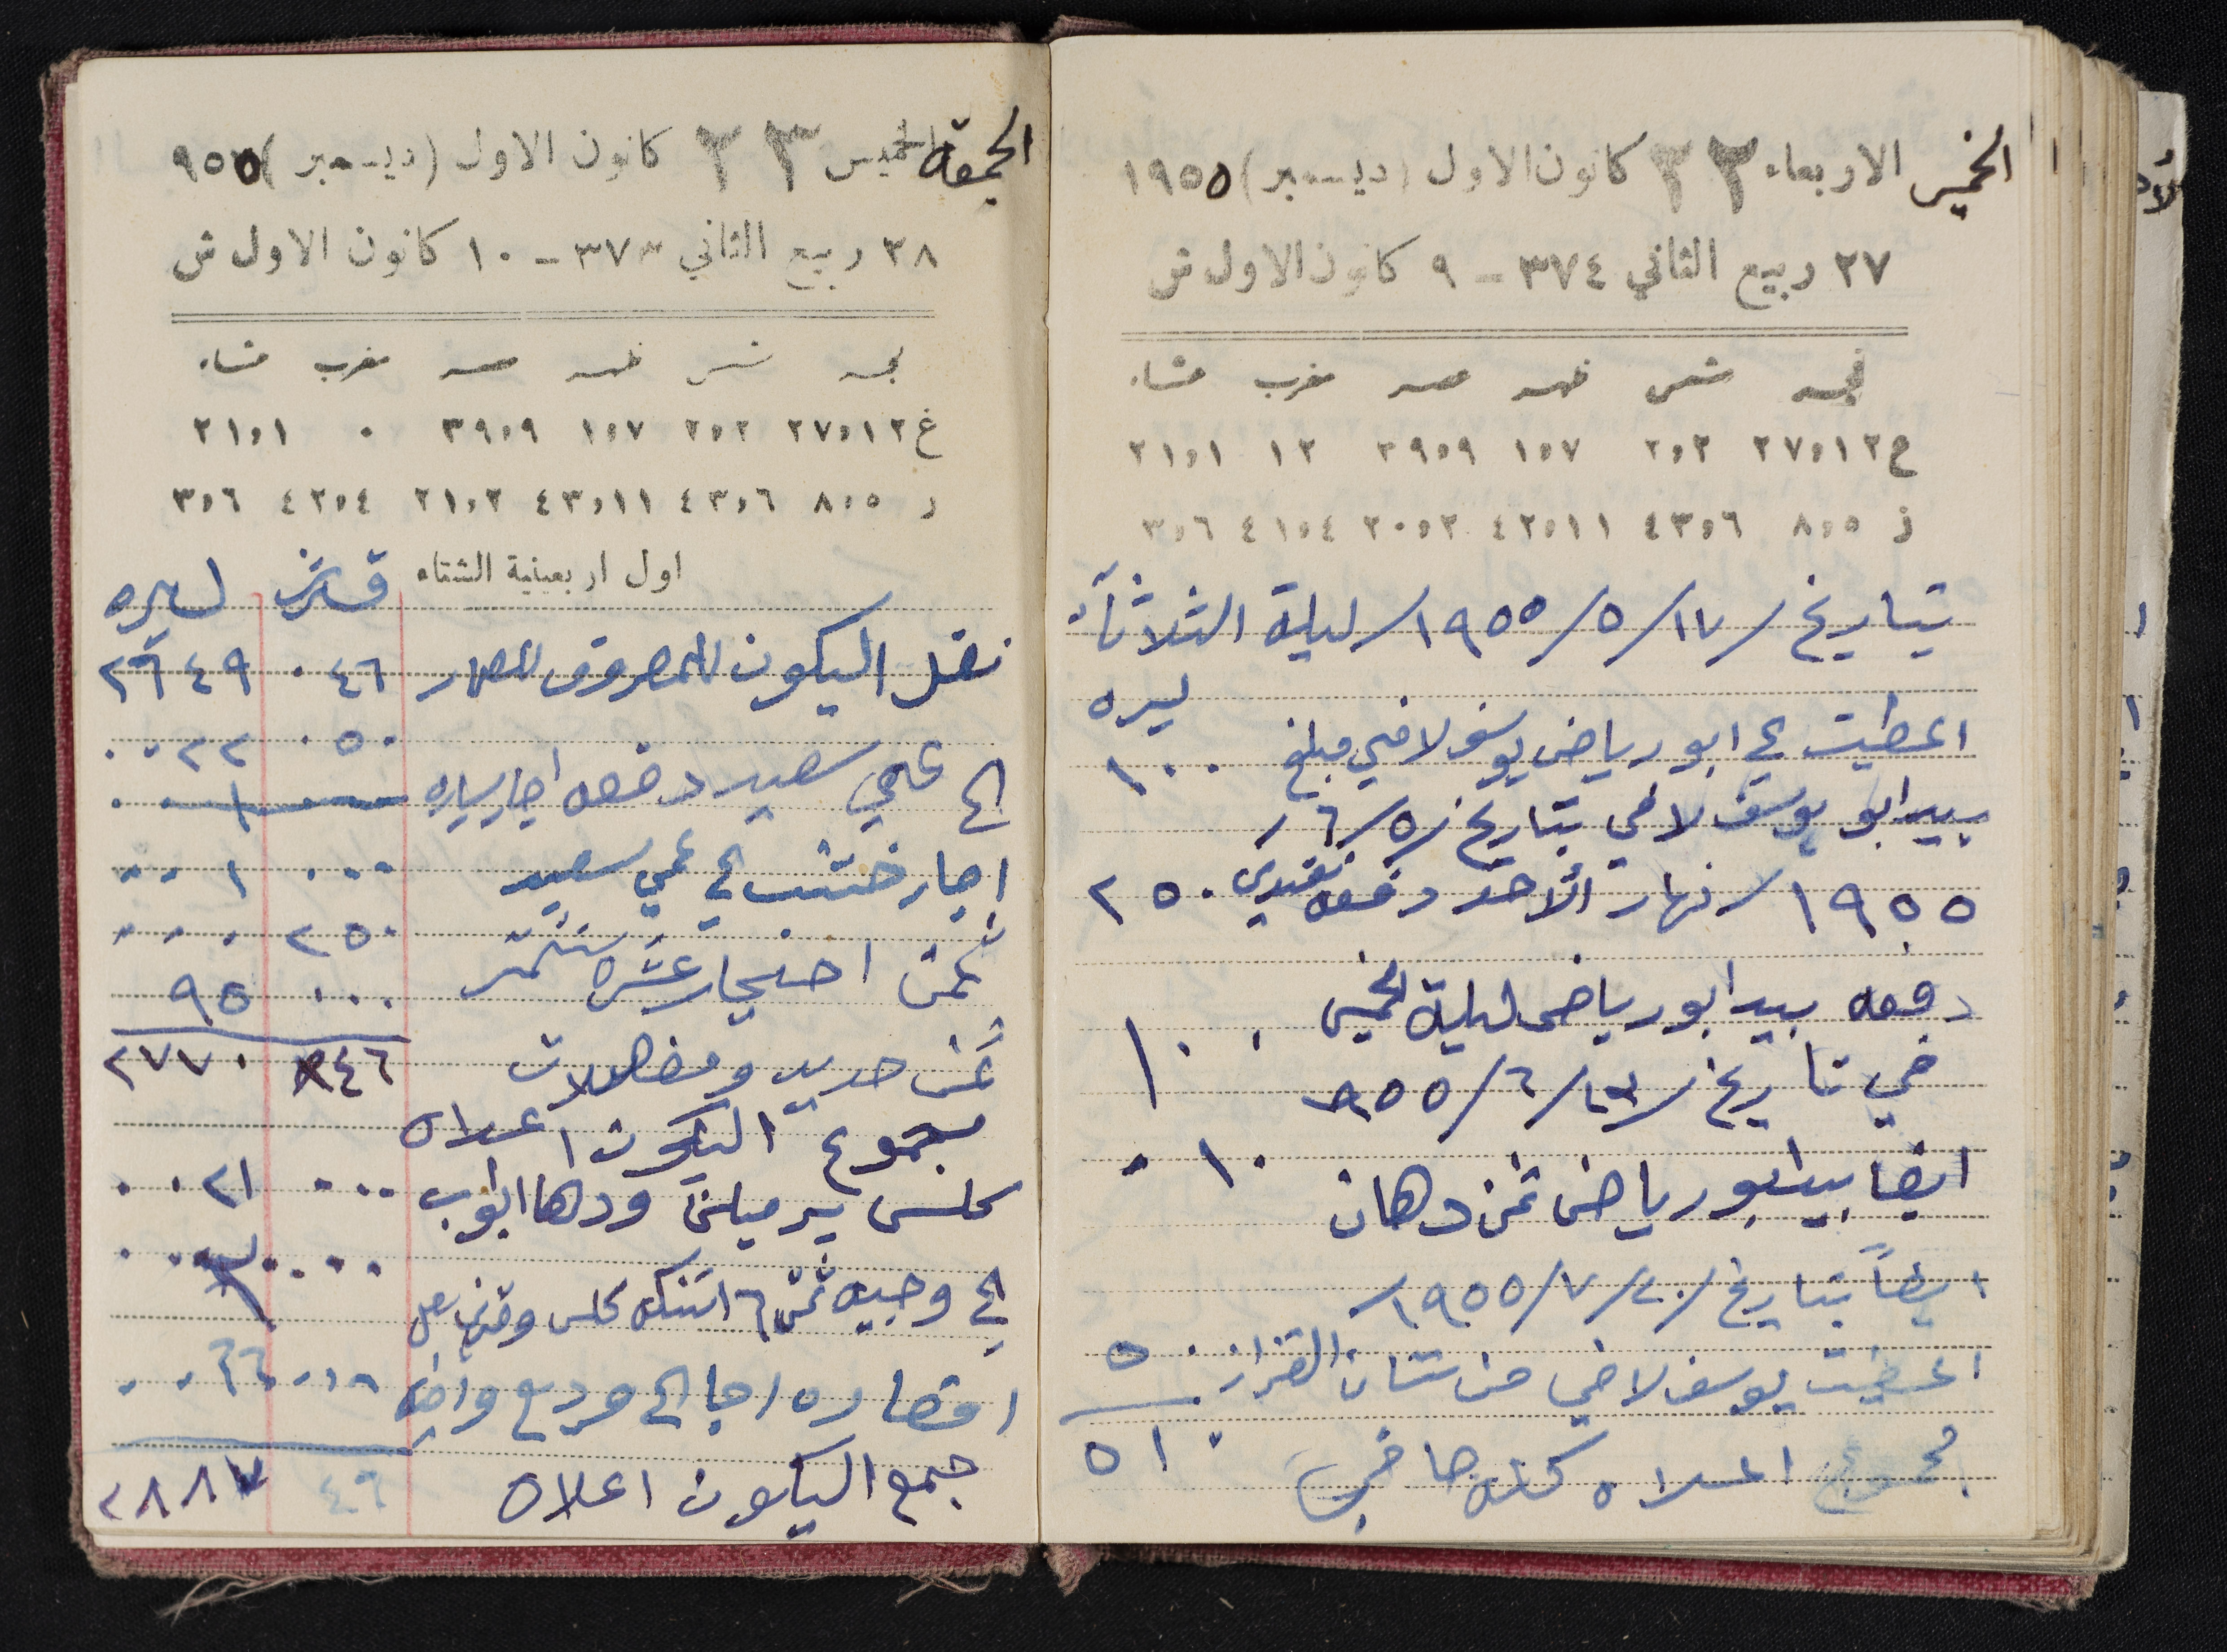 الخميس الاربعاء ٢٢ كانون الاول (ديسمبر) ١٩٥٥
٢٧ ربيع الثاني ٣٧٤ - ٩ كانون الاول ش
فجر شمس ظهر عصر مغرب عشاء
ع ٢٧،١٢ ٢،٢ ١،٧ ٣٩،٩ ١٢ ٢١،١
ز ٨،٥ ٤٣،٦ ٤٢،١١ ٢٠،٢ ٤١،٤ ٣،٦
بتاريخ /١٧/ ٥/ ١٩٥٥/ ليلة الثلاثاء
ليره
اعطيت الى ابو رياض يوسف لافي مبلغ ١٠٠
بيد ابو يوسف لافي بتاريخ /٥/ ٦/
١٩٥٥/ نهار الأحد دفعه نقدي ٢٥٠
دفعه بيد ابو رياض ليلة الخميس ١٠٠
في تاريخ /٢٣/ ٦/ ٩٥٥
ايضا بيد ابو رياض ثمن دهان ١٠
ايضاً بتاريخ /٢٠/ ٧/ ١٩٥٥/
اعطيت يوسف لافي من شان القزاز ٥٠
مجموع اعلاه كله صافي ٥١٠
الجمعه الخميس ٢٣ كانون الاول (ديسمبر) ٩٥٥
٢٨ ربيع الثاني ٣٧٣ - ١٠ كانون الاول ش
فجر شمس ظهر عصر مغرب عشاء
غ ٢٧،١٢ ٢،٢ ١،٧ ٣٩،٩ ٠ ٢١،١
ر ٨،٥ ٤٣،٦ ٤٣،١١ ٢١،٢ ٤٢،٤ ٣،٦
اول اربعينية الشتاء
قرش ليره
نقل اليكون المصروف للعمار ٠٤٦ ٢٦٤٩
٠٥٠ ٠٠٢٢
الى عمي سعيد دفعه اجار سياره ٠٠٠ ٠٠١
اجار خشب الى عمي سعيد ٠٠٠ ٠٠١
ثمن احجار عشره سنتمتر ٢٥٠ ٠٠٠
٠٠٠ ٩٥
ثمن حديد ومفصلات ٤٦ ٢٧٧٠
مجموع اليكون اعلاه
كلس برميلين ودهان ابواب ٠٠٠ ٠٠٢١
الى وجيه ثمن ٦ اتنكه كلس
اقصاره اجا الى
جمع اليكون اعلاه ٤٦ ٢٨٨٧